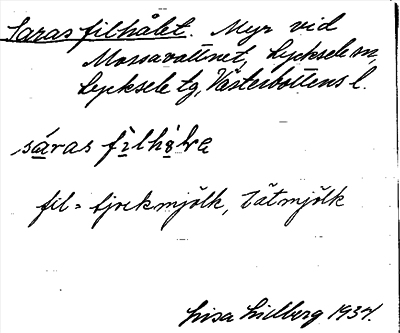 Saras filhålet. Myr vid
Mossavattnet, Lycksele sn,
Lycksele tg, Västerbottens l.
sáras filhòlɐ
fil = tjockmjölk, tätmjölk
Lisa Lidberg 1934.